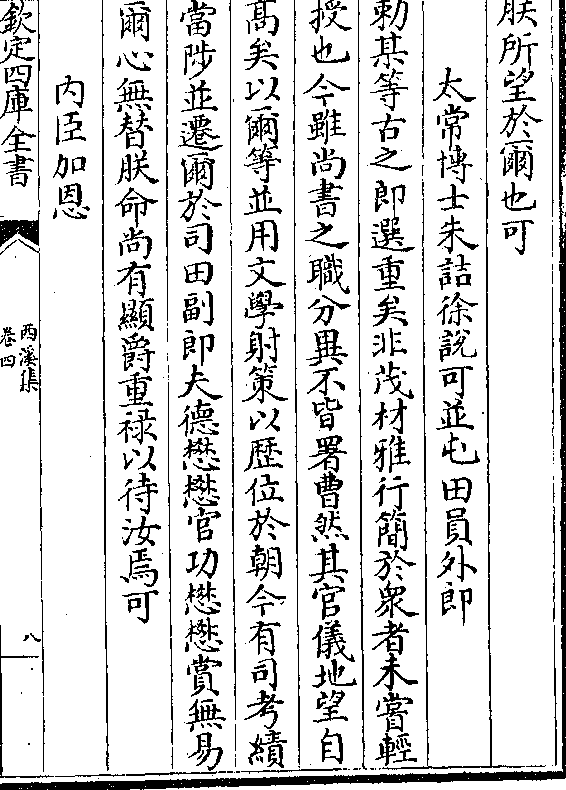 朕所望於爾也可
太常博士朱詰徐說可並屯田員外郎
勅某等古之郎選重矣非茂材雅行簡於衆者未嘗輕
授也今雖尚書之職分異不皆署曹然其官儀地望自
髙矣以爾等並用文學射策以歴位於朝今有司考績
當陟並遷爾於司田副郎夫德懋懋官功懋懋賞無易
爾心無替朕命尚有顯爵重禄以待汝焉可
内臣加恩
欽定四庫全書
西溪集
卷四
八